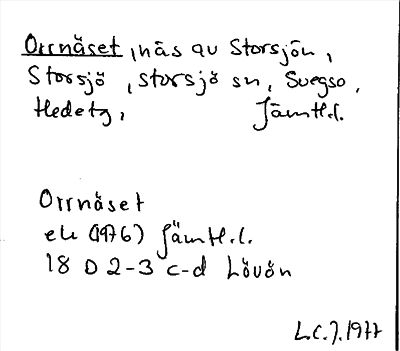 Orrnäset, näs av Storsjön,
Storsjö, Storsjö sn, Svegso,
Hedetg, Jämtl.l.
Orrnäset
ek (1976) Jämtl.l.
18 D 2-3 c-d Lövön
L.C.J. 1977